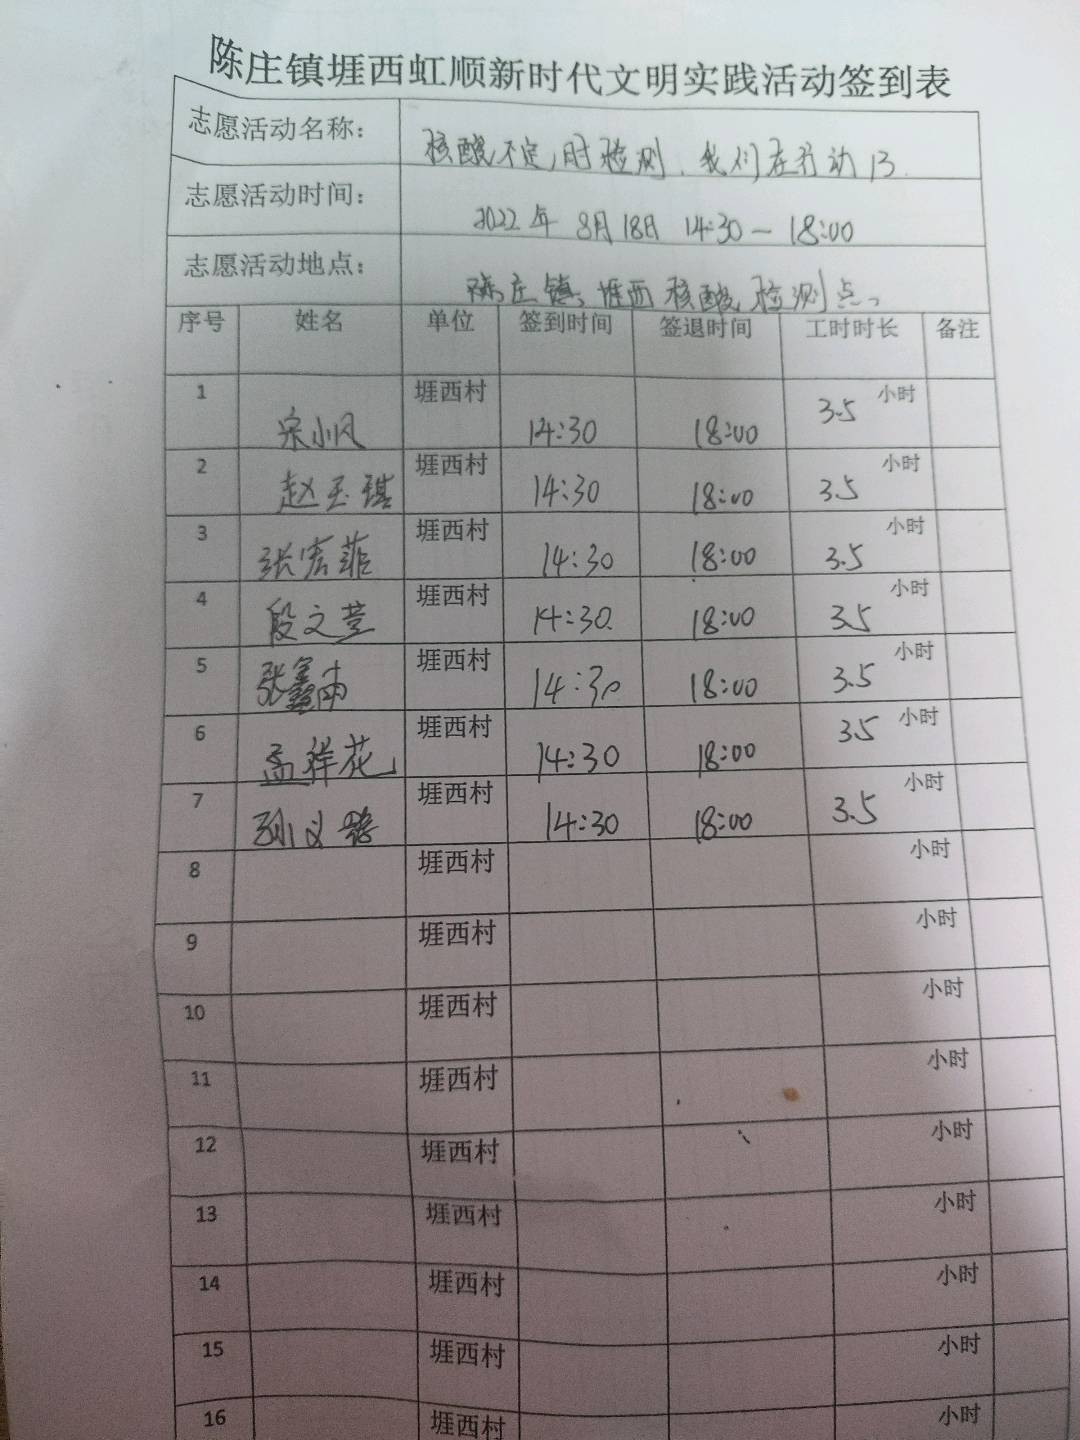 陈庄镇堐西虹顺新时代文明实践活动签到表
志愿活动名称： 核酸不定时检测，我们在行动13
志愿活动时间： 2022年8月18日 14:30—18:00
志愿活动地点： 陈庄镇堐西核酸检测点
序号 姓名 单位 签到时间 签退时间 工时时长 备注
1 宋小风 堐西村 14:30 18:00 3.5 小时
2 赵玉琪 堐西村 14:30 18:00 3.5 小时
3 张宏菲 堐西村 14:30 18:00 3.5 小时
4 段文萱 堐西村 14:30 18:00 3.5 小时
5 张鑫雨 堐西村 14:30 18:00 3.5 小时
6 孟祥花 堐西村 14:30 18:00 3.5 小时
7 孙义 堐西村 14:30 18:00 3.5 小时
8 堐西村 小时
9 堐西村 小时
10 堐西村 小时
11 堐西村 小时
12 堐西村 小时
13 堐西村 小时
14 堐西村 小时
15 堐西村 小时
16 堐西村 小时